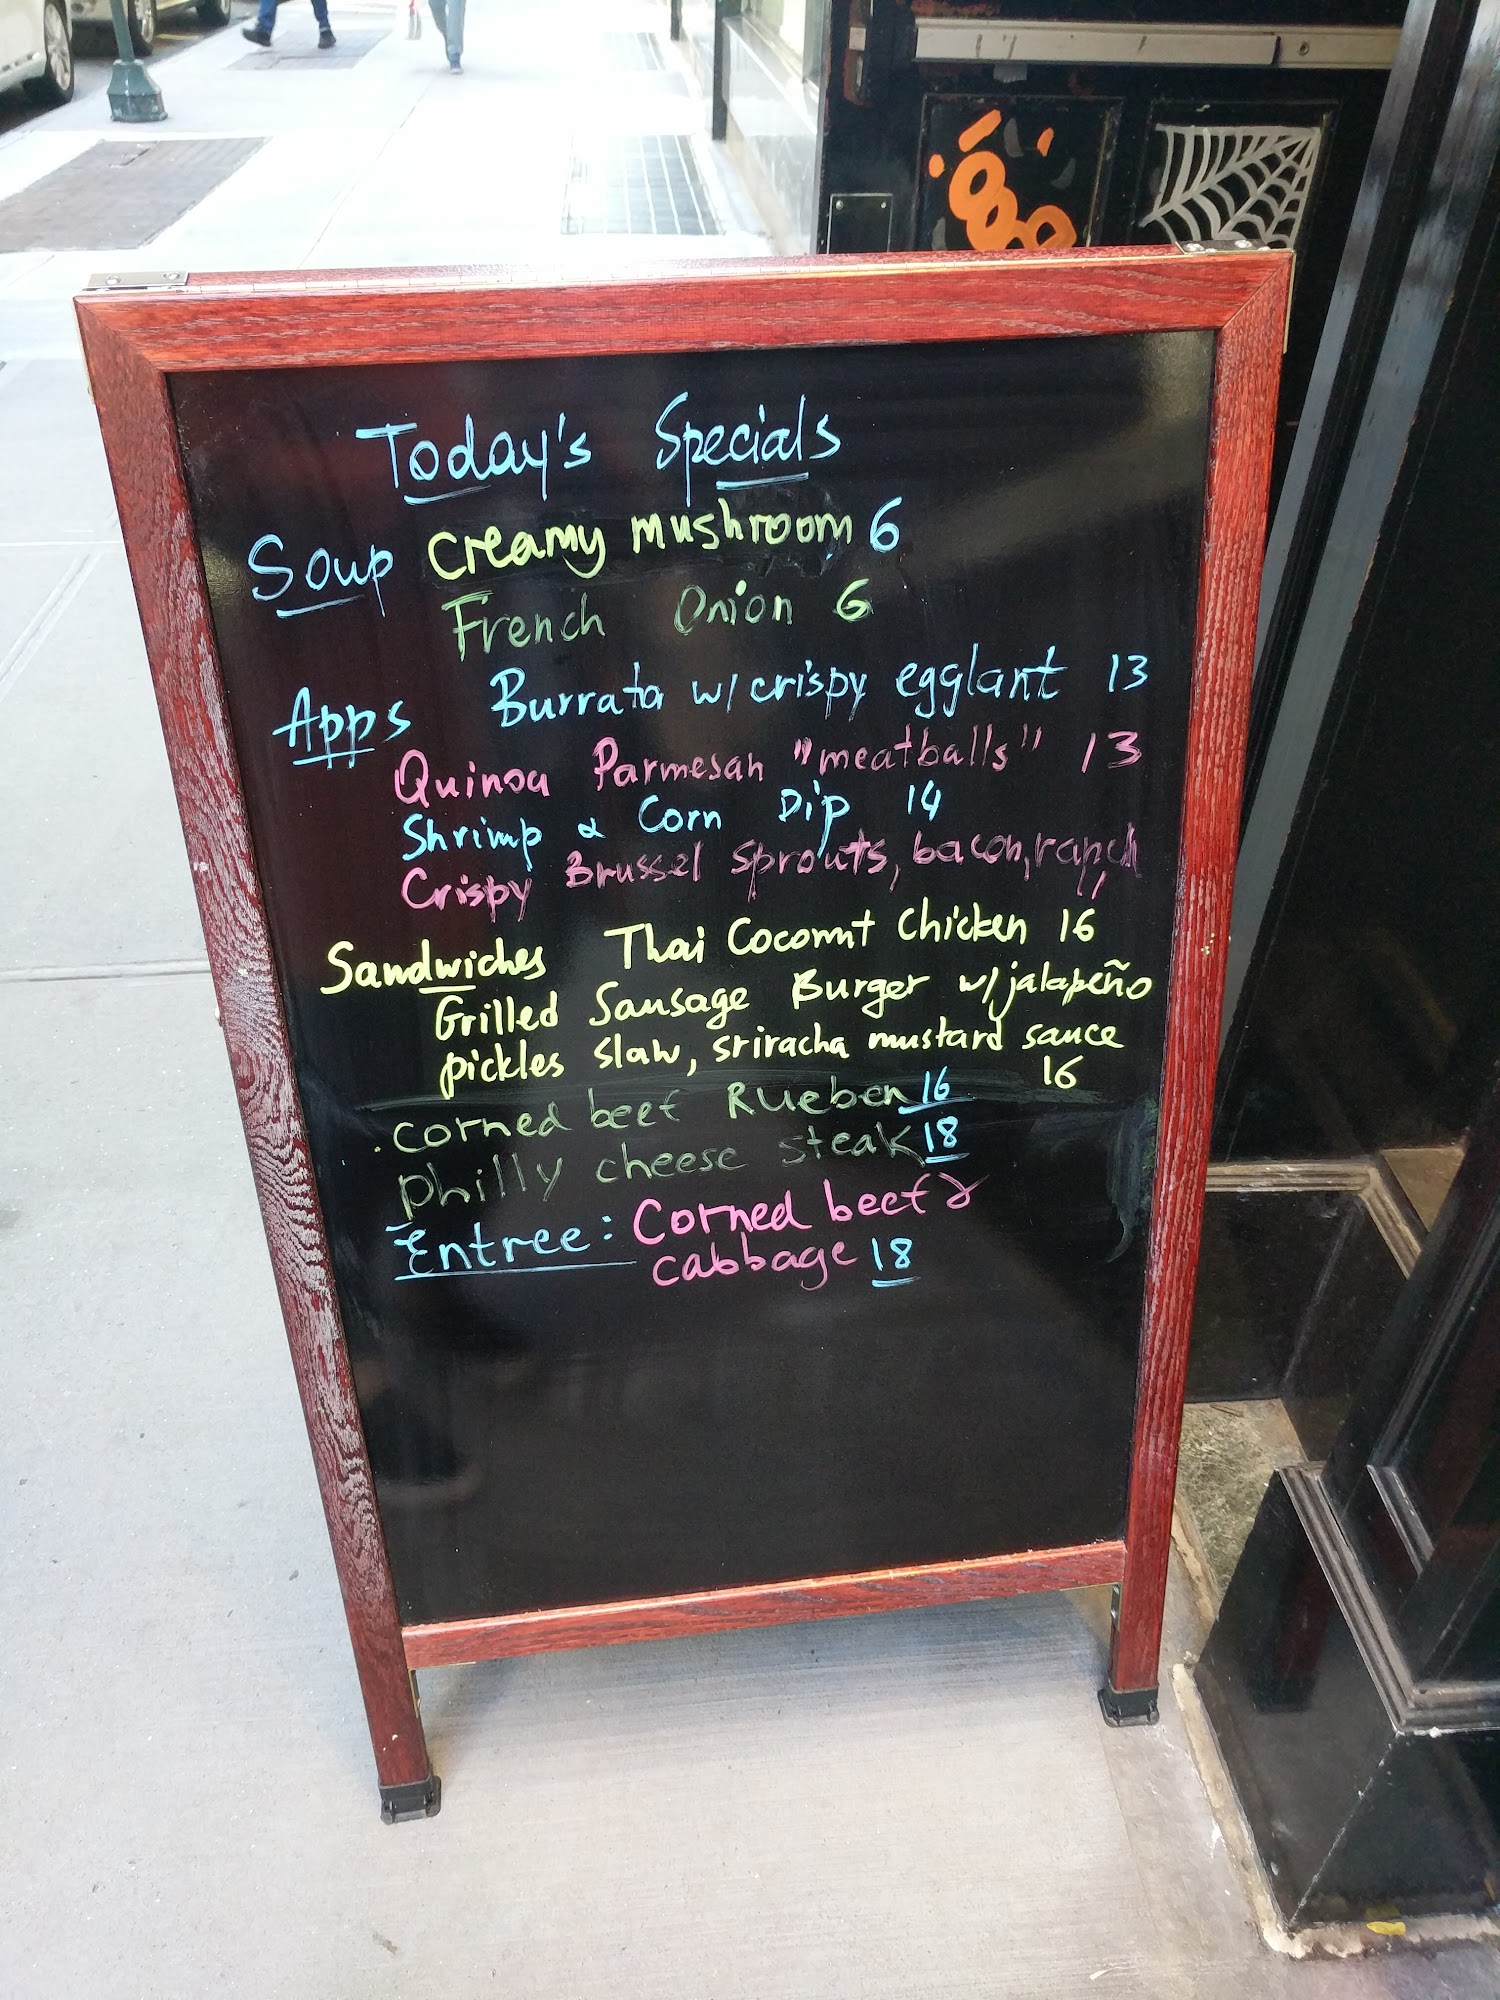 Today's Specials
Soup Creamy mushroom 6
French Onion 6
Apps Burrata w/crispy egglant 13
Quinoa Parmesan "meatballs" 13
Shrimp & Corn Dip 14
Crispy Brussel sprouts, bacon, ranch
Sandwiches Thai Coconut Chicken 16
Grilled Sausage Burger w/jalapeño
pickles slaw, sriracha mustard sauce
16
Corned beef Rueben 16
philly cheese steak 18
Entree: Corned beef &
cabbage 18